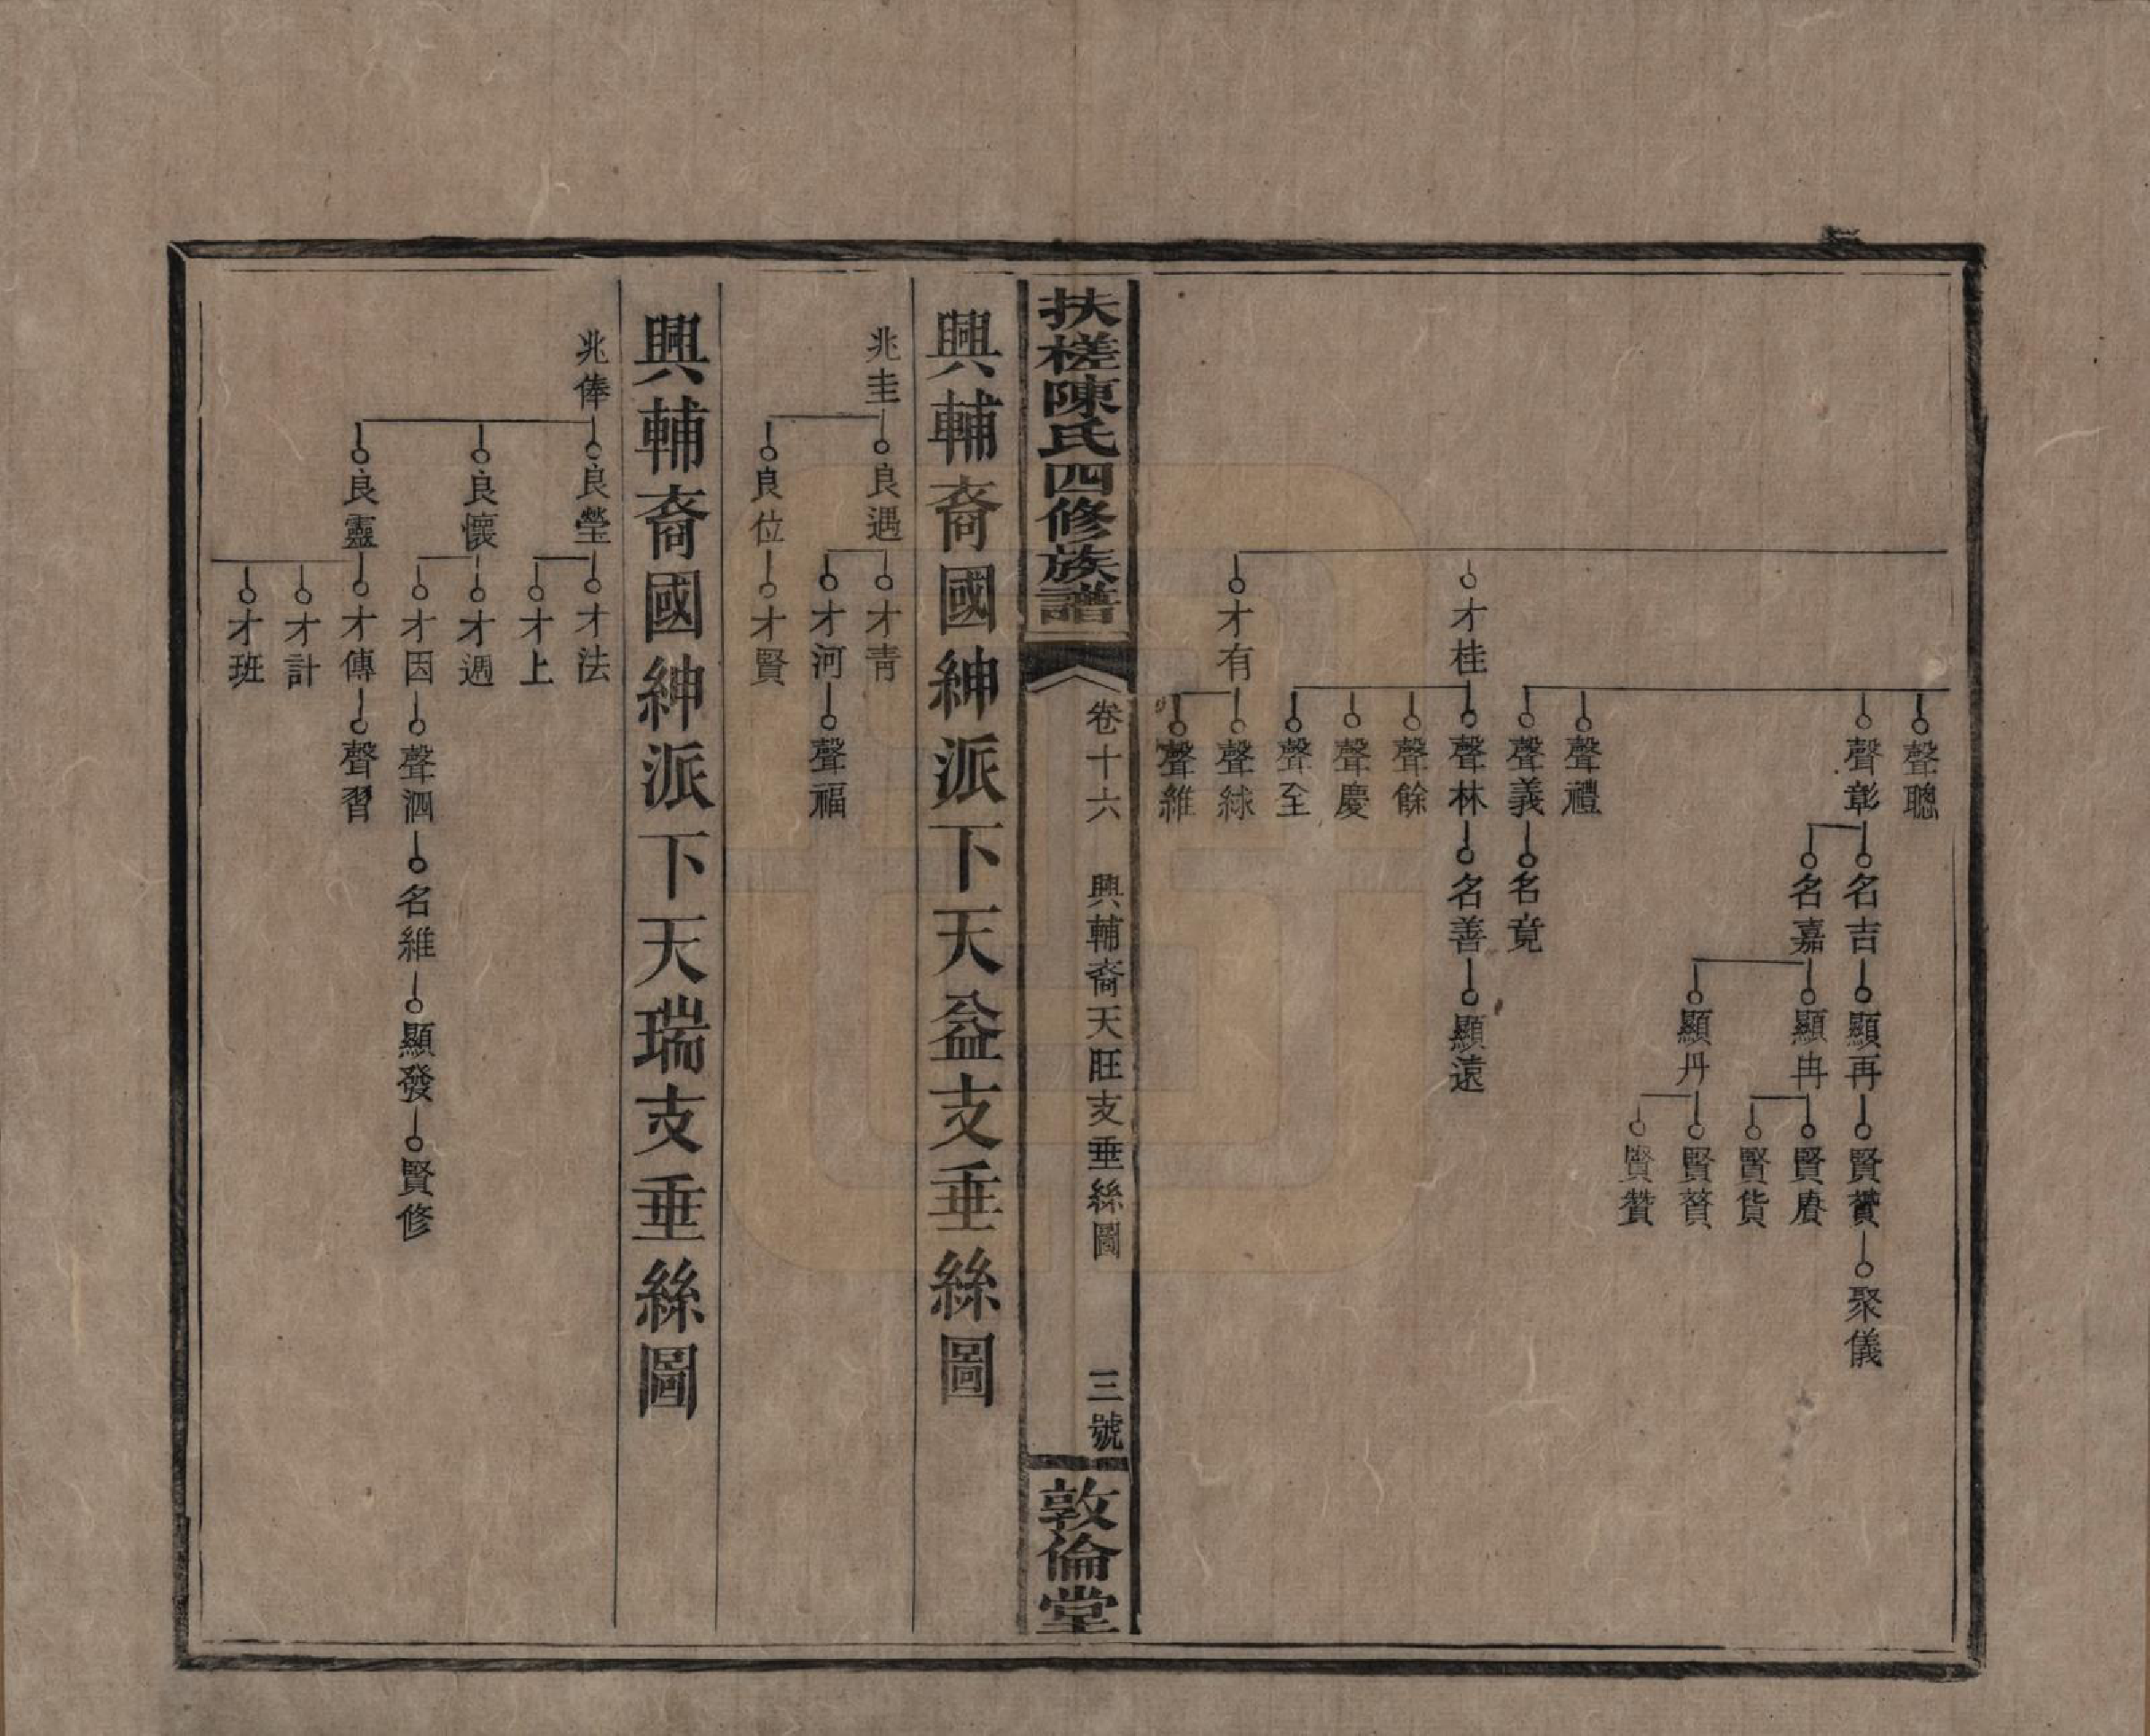 聲聰
聲彰
名吉
顯再
賢贊
聚儀
名嘉
顯冉
賢賡
賢貨
顯丹
賢贅
賢贊
聲禮
聲義
名竟
才桂
聲林
名善
顯遠
聲餘
聲慶
聲至
才有
聲絿
聲維
扶槎陳氏四修族譜
卷十六
興輔裔天旺支垂絲圖
三號
敦倫堂
興輔裔國紳派下天益支垂絲圖
兆圭
良遇
才青
才河
聲福
良位
才賢
興輔裔國紳派下天瑞支垂絲圖
兆俸
良瑩
才法
才上
良懷
才週
才因
聲泗
名維
顯發
賢修
良靈
才傳
聲習
才計
才班